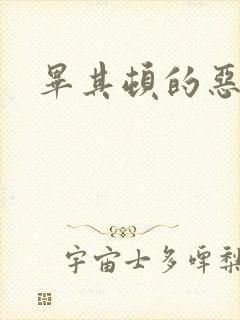 畢其頓的惡
宇宙士多啤梨